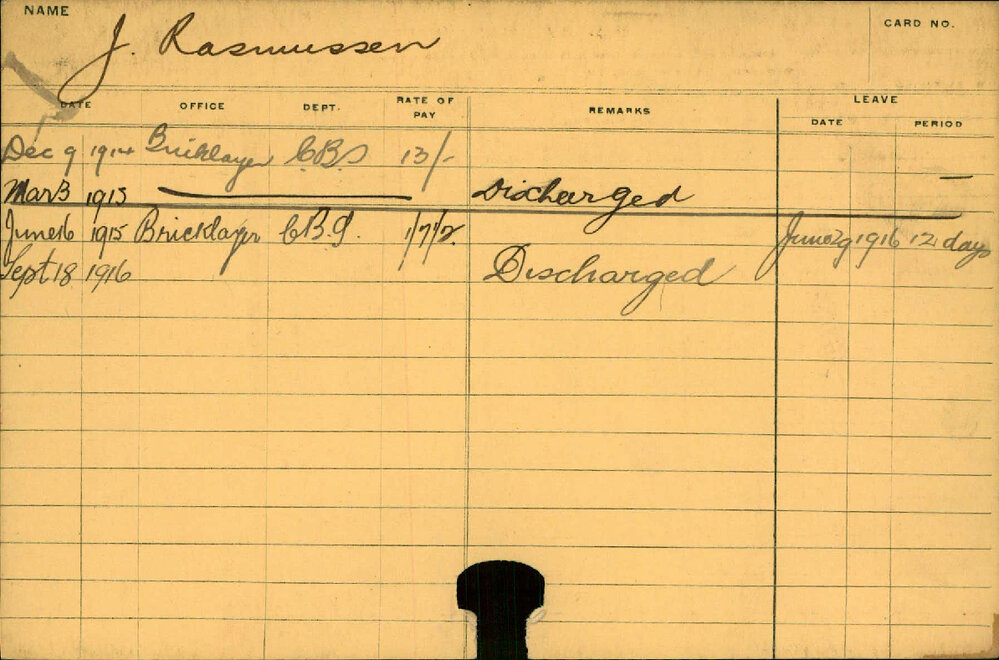 NAME
CARD NO.
J. Rasmussen
DATE OFFICE DEPT. RATE OF PAY REMARKS LEAVE
DATE PERIOD
Dec 9 1914 Bricklayer 13/-
Mar 3 1915 Discharged —
June 16 1915 Bricklayer 1/7/2 June 29 1916 12 days
Sept 18 1916 Discharged